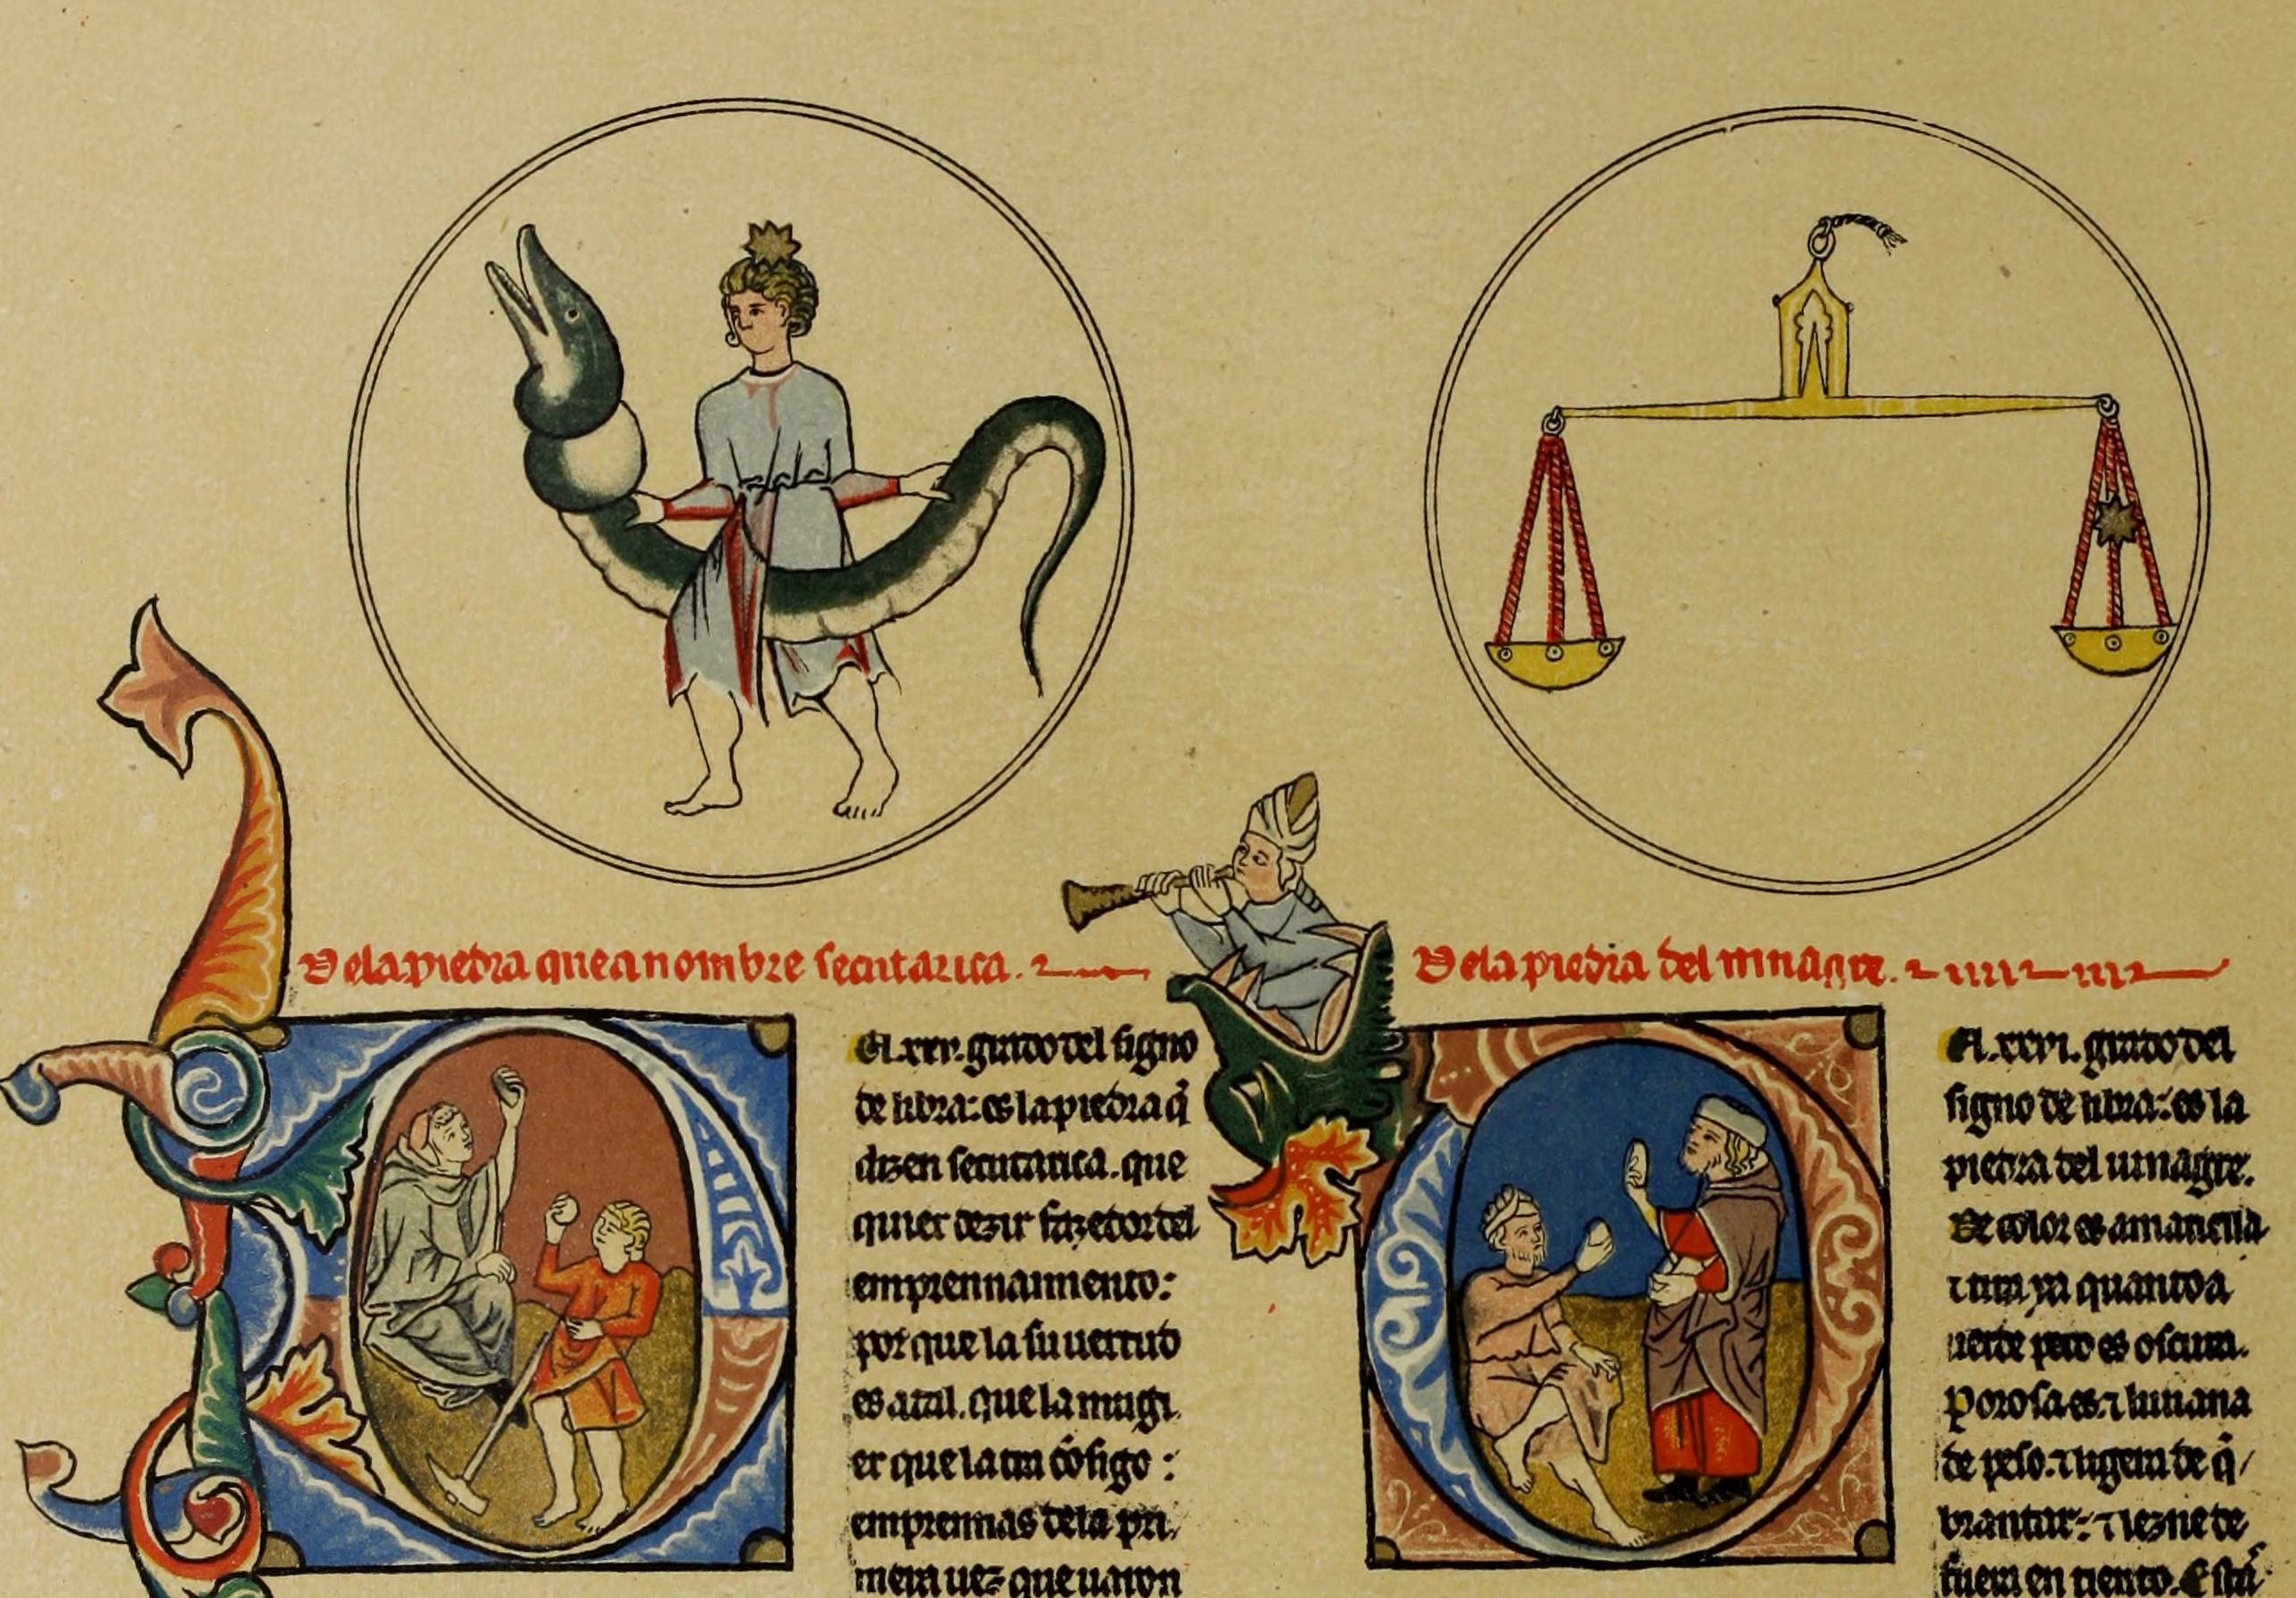 De la piedra que a nombre secutarica.
Del .xxv. grado del signo
de libra: es la piedra q̃
dizen secutarica. que
quier dezir fazedor del
emprennamiento:
por que la su uertud
es atal. que la mugi
er que la tiñ cõsigo:
emprennas dela pri
mera uez que uaron
De la piedra del uinagre.
Del .xxvi. grado del
signo de libra: es la
piedra del uinagre.
De color es amariella
⁊ tira ya quanto a
uerde pero es oscura.
Porosa es. ⁊ liuiana
de peso. ⁊ ligera de q̃
brantar: ⁊ lezne de
fuera en tiento. E